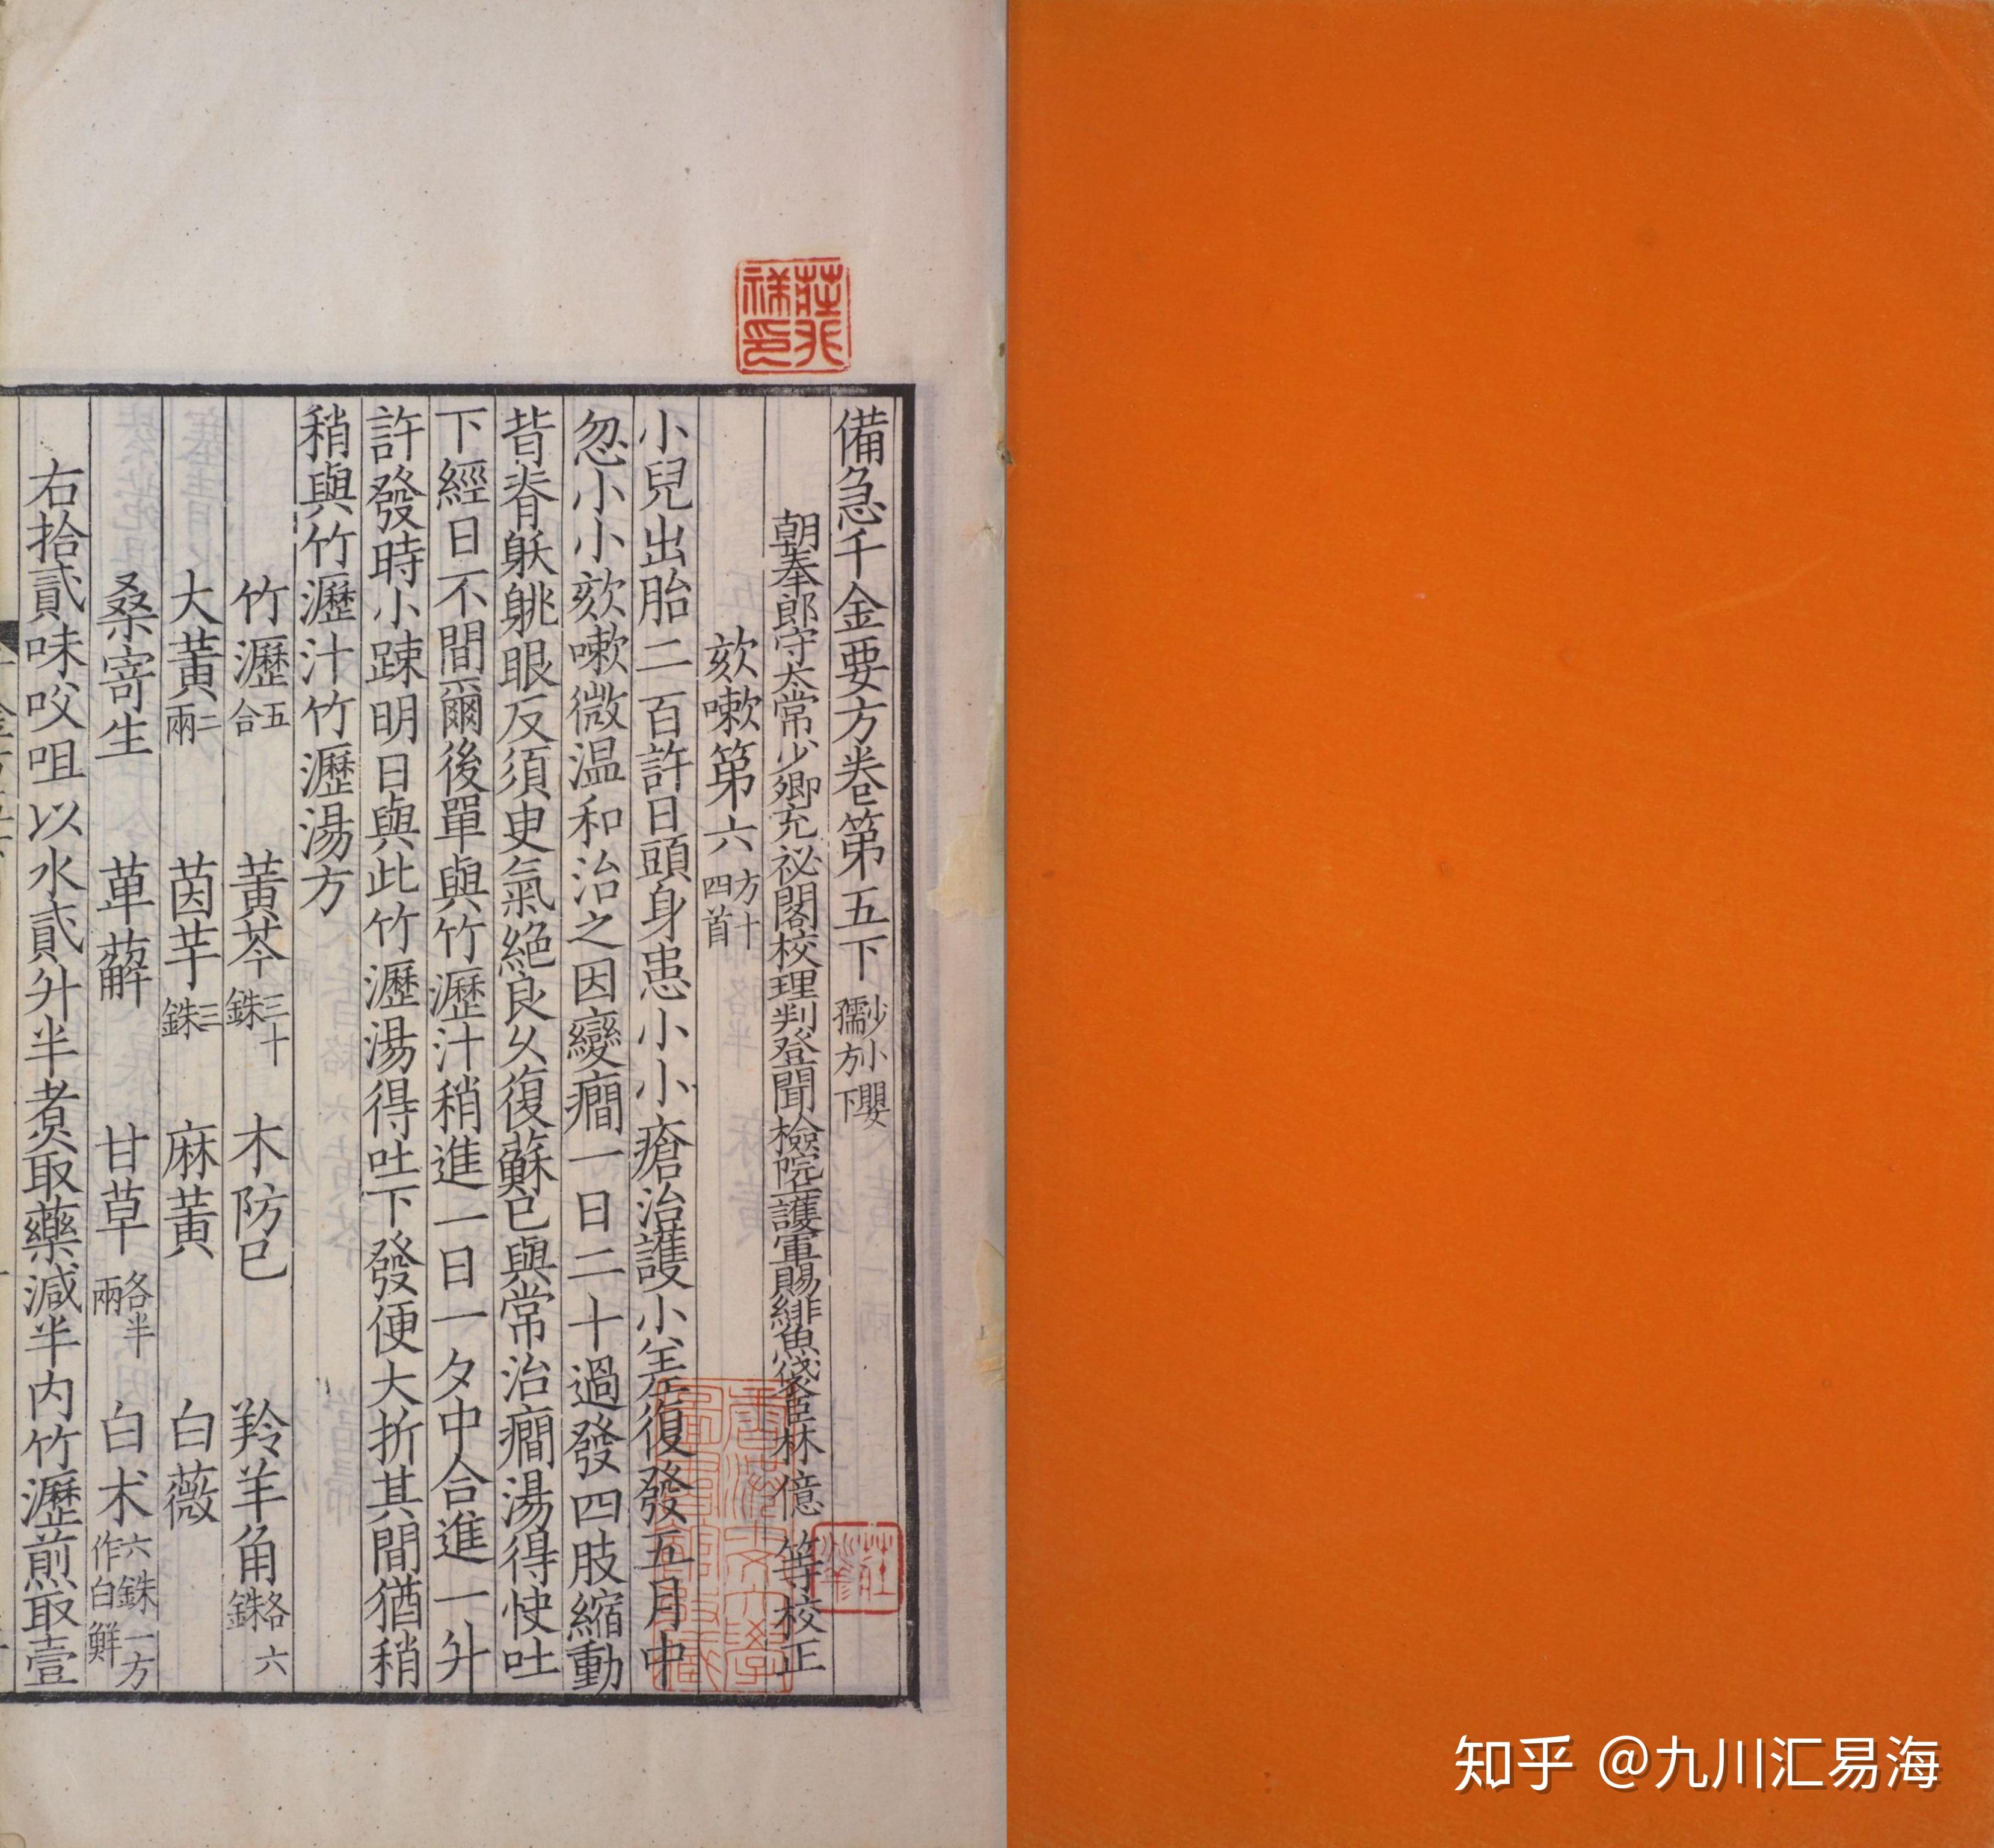 備急千金要方卷第五下 少小嬰孺方下
朝奉郎守太常少卿充祕閣校理判登聞檢院上護軍賜緋魚袋臣林億等校正
欬嗽第六 方十四首
小兒出胎二百許日頭身患小小瘡治護小差復發五月中
忽小小欬嗽微温和治之因變癇一日二十過發四肢縮動
背脊躽䠷眼反須臾氣絕良久復蘇已與常治癇湯得快吐
下經日不間爾後單與竹瀝汁稍進一日一夕中合進一升
許發時小踈明日與此竹瀝湯得吐下發便大折其間猶稍
稍與竹瀝汁竹瀝湯方
竹瀝五合 黃芩三十銖 木防已 羚羊角各六銖
大黃二兩 茵芋三銖 麻黃 白薇
桑寄生 萆薢 甘草各半兩 白术六銖一方作白鮮
右拾貳味㕮咀以水貳升半煮取藥減半内竹瀝煎取壹
知乎 @九川汇易海